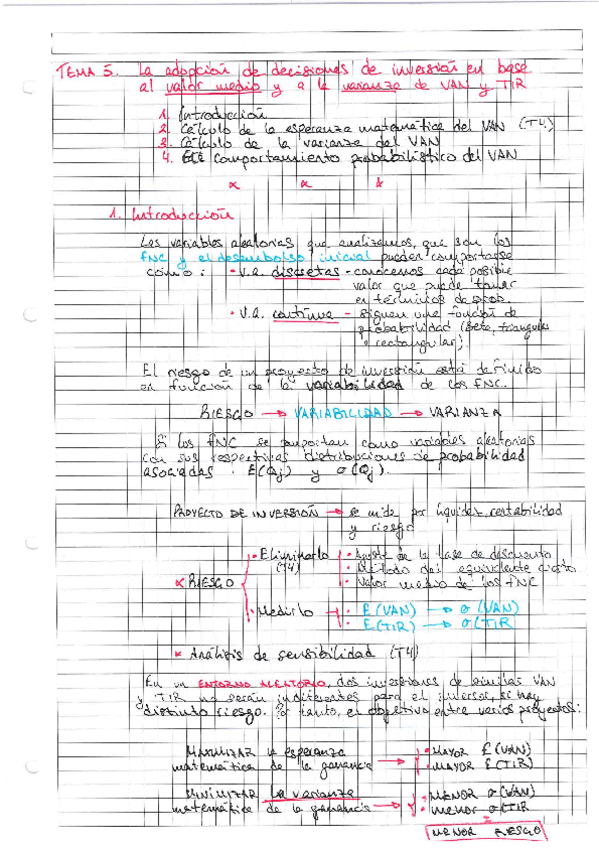 TEMA 5. La adopción de decisiones de inversión en base
al valor medio y a la varianza de VAN y TIR
1. Introducción
2. Cálculo de la esperanza matemática del VAN (T4)
3. Cálculo de la varianza del VAN
4. El comportamiento probabilístico del VAN
x x x
1. Introducción
Las variables aleatorias que analizamos, que son los
FNC y el desembolso inicial pueden comportarse
como: • V.a. discretas - conocemos cada posible
valor que puede tomar
en términos de prob.
• V.a. continua - siguen una función de
probabilidad (beta, triangular
o rectangular)
El riesgo de un proyecto de inversión está definido
en función de la variabilidad de los FNC.
RIESGO → VARIABILIDAD → VARIANZA
Si los FNC se comportan como variables aleatorias
con sus respectivas distribuciones de probabilidad
asociadas: E(Qj) y σ(Qj).
PROYECTO DE INVERSIÓN → se mide por liquidez, rentabilidad
y riesgo
• Eliminarlo • Ajuste de la tasa de descuento
(T4) • Método del equivalente cierto
x RIESGO • Valor medio de los FNC
• Medirlo → • E(VAN) → σ(VAN)
• E(TIR) → σ(TIR
x Análisis de sensibilidad (T4)
En un ENTORNO ALEATORIO, dos inversiones de similar VAN
y TIR no serán indiferentes para el inversor, si hay
distinto riesgo. Por tanto, el objetivo entre varios proyectos:
MAXIMIZAR la esperanza • MAYOR E(VAN)
matemática de la ganancia → • MAYOR E(TIR)
MINIMIZAR la varianza • MENOR σ(VAN)
matemática de la ganancia → • menor σ(TIR
MENOR RIESGO